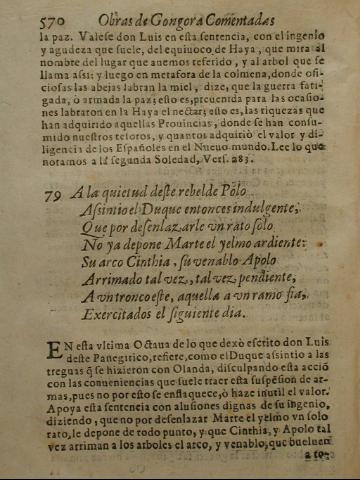 570 Obras de Gongora Comentadas
la paz. Valese don Luis en esta sentencia, con el ingenio
y agudeza que suele, del equiuoco de Haya, que mira al
nombre del lugar que auemos referido, y al arbol que se
llama assi: y luego en metafora de la colmena, donde ofi-
ciosas las abejas labran la miel, dize, que la guerra fati-
gada, ò armada la paz; esto es, preuenida para las ocasio-
nes labraron en la Haya el nectar; esto es, las riquezas que
han adquirido aquellas Prouincias, donde se han consu-
mido nuestros tesoros, y quantos adquiriò el valor y di-
ligencia de los Españoles en el Nueuo mundo. Lee lo que
notamos a la segunda Soledad, Vers. 283.
79 A la quietud deste rebelde Polo
Assintio el Duque entonces indulgente,
Que por desenlazarle vn rato solo
No ya depone Marte el yelmo ardiente:
Su arco Cinthia, su venablo Apolo
Arrimado tal vez, tal vez pendiente,
A vn tronco este, aquella a vn ramo fia,
Exercitados el siguiente dia.
EN esta vltima Octaua de lo que dexò escrito don Luis
deste Panegirico, refiere, como el Duque assintio a las
treguas q̃ se hizieron con Olanda, disculpando esta acciõ
con las conueniencias que suele traer esta suspẽsion de ar-
mas, pues no por esto se enflaquece, ò haze inutil el valor.
Apoya esta sentencia con alusiones dignas de su ingenio,
diziendo, que no por desenlazar Marte el yelmo vn solo
rato, le depone de todo punto, y que Cinthia, y Apolo tal
vez arriman a los arboles el arco, y venablo, que bueluen
a to-